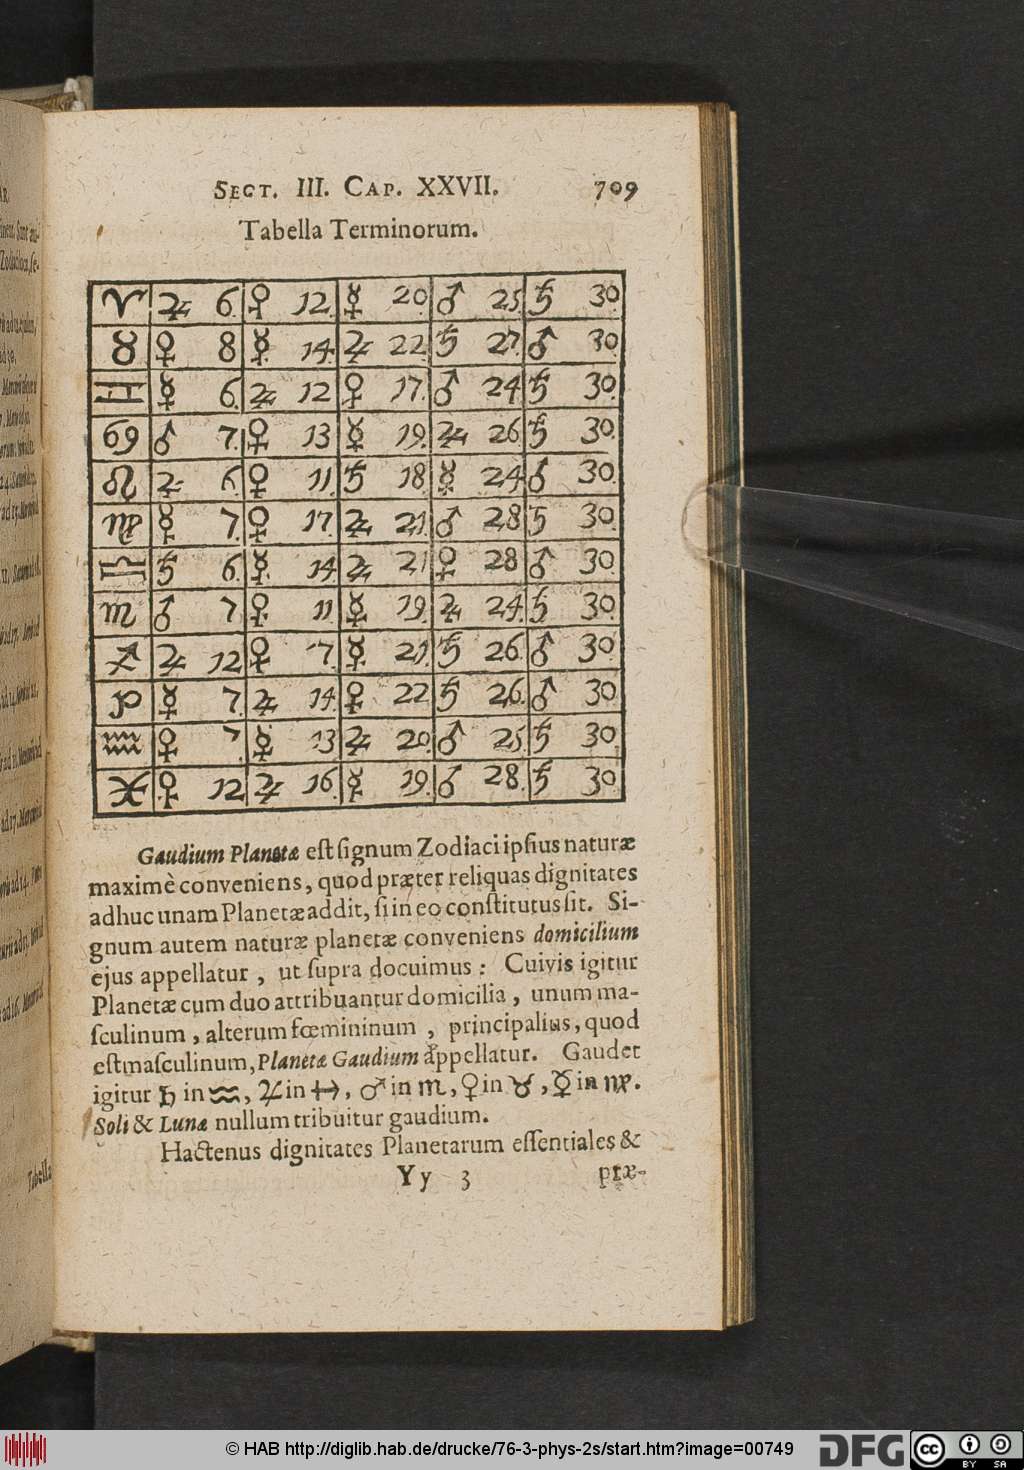 SECT. III. CAP. XXVII. 709
Tabella Terminorum.
♈ ♃ 6. ♀ 12. ☿ 20. ♂ 25. ♄ 30.
♉ ♀ 8 ☿ 14. ♃ 22. ♄ 27. ♂ 30.
♊ ☿ 6. ♃ 12 ♀ 17. ♂ 24. ♄ 30.
♋ ♂ 7. ♀ 13 ☿ 19. ♃ 26. ♄ 30.
♌ ♃ 6. ♀ 11. ♄ 18. ☿ 24. ♂ 30.
♍ ☿ 7. ♀ 17. ♃ 21. ♂ 28. ♄ 30.
♎ ♄ 6. ☿ 14. ♃ 21. ♀ 28. ♂ 30.
♏ ♂ 7 ♀ 11. ☿ 19. ♃ 24. ♄ 30.
♐ ♃ 12 ♀ 17. ☿ 21. ♄ 26. ♂ 30
♑ ☿ 7. ♃ 14. ♀ 22 ♄ 26. ♂ 30
♒ ♀ 7. ☿ 13 ♃ 20. ♂ 25. ♄ 30.
♓ ♀ 12. ♃ 16. ☿ 19. ♂ 28. ♄ 30.
Gaudium Planetæ est signum Zodiaci ipsius naturæ
maximè conveniens, quod præter reliquas dignitates
adhuc unam Planetæ addit, si in eo constitutus sit. Si-
gnum autem naturæ planetæ conveniens domicilium
ejus appellatur, ut supra docuimus: Cuivis igitur
Planetæ cum duo attribuantur domicilia, unum ma-
sculinum, alterum fœmininum, principalius, quod
est masculinum, Planetæ Gaudium appellatur. Gaudet
igitur ♄ in ♒, ♃ in ♐, ♂ in ♏, ♀ in ♉, ☿ in ♍.
Soli & Lunæ nullum tribuitur gaudium.
Hactenus dignitates Planetarum essentiales &
Yy 3 præ-
Tabella
© HAB http://diglib.hab.de/drucke/76-3-phys-2s/start.htm?image=00749
DFG
cc
BY SA